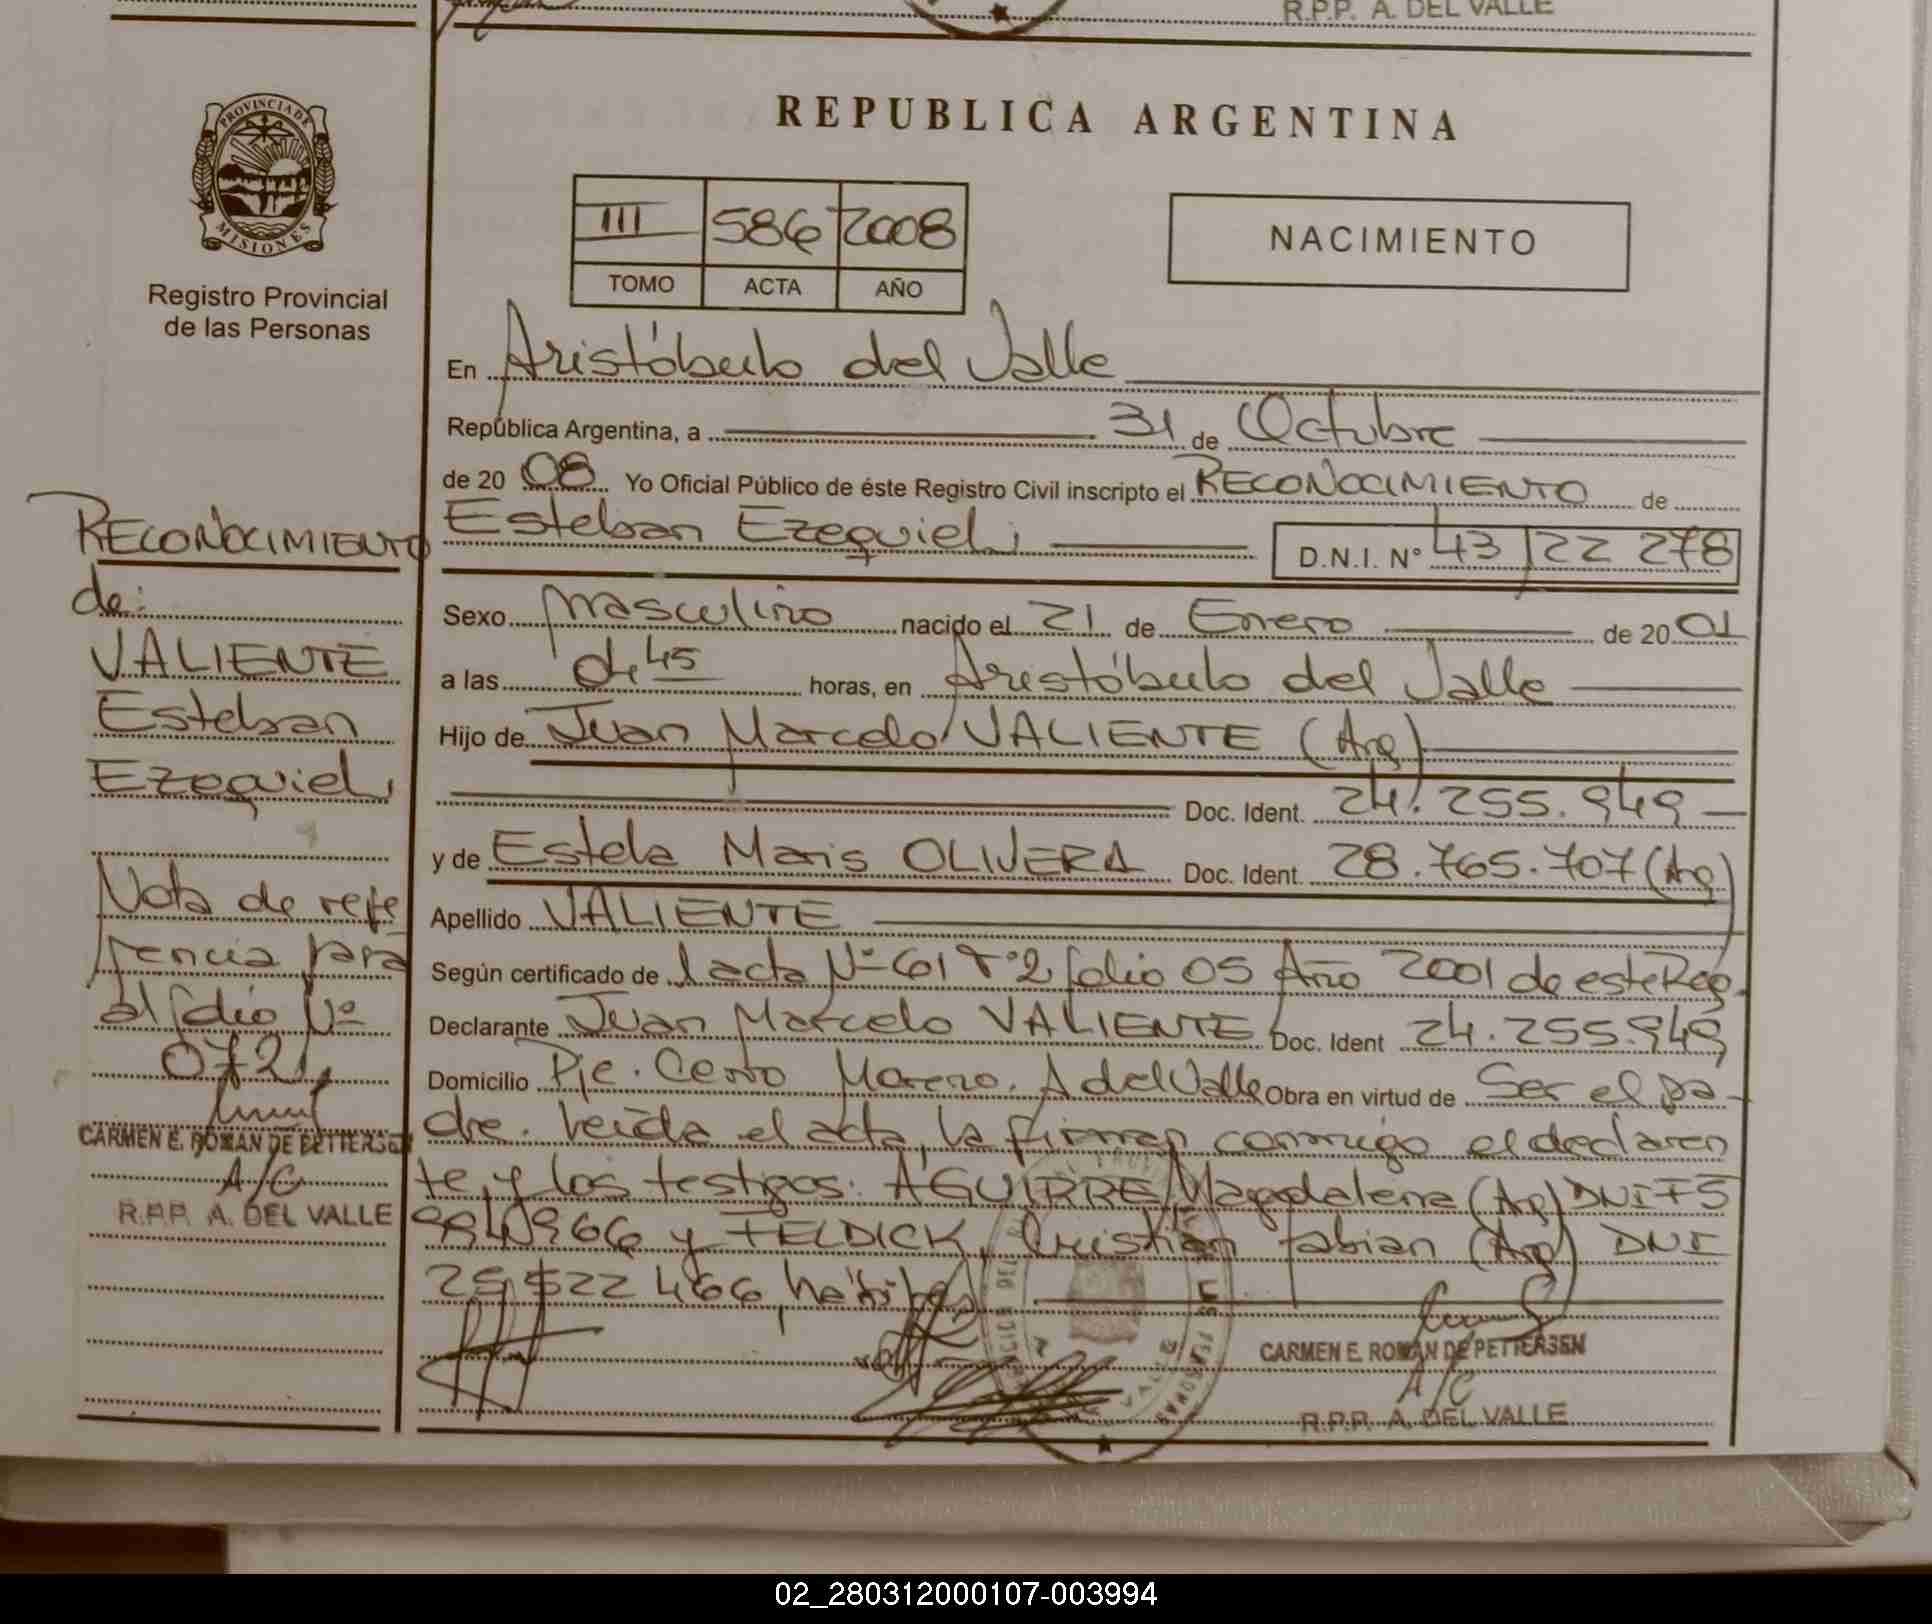 R.P.P. A. DEL VALLE
PROVINCIA DE
MISIONES
Registro Provincial
de las Personas
REPUBLICA ARGENTINA
III 586 2008
TOMO ACTA AÑO
NACIMIENTO
En Aristóbulo del Valle
República Argentina, a 31 de Octubre
de 20 08 Yo Oficial Público de éste Registro Civil inscripto el RECONOCIMIENTO de
Esteban Ezequiel D.N.I. Nº 43 122 278
Sexo masculino nacido el 21 de Enero de 20 01
a las 04 45 horas, en Aristóbulo del Valle
Hijo de Juan Marcelo VALIENTE (Arg)
Doc. Ident. 24.255.949
y de Estela Maris OLIVERA Doc. Ident. 28.765.707 (Arg)
Apellido VALIENTE
Según certificado de acta Nº 61 Tº 2 folio 05 Año 2001 de este Reg.
Declarante Juan Marcelo VALIENTE Doc. Ident 24.255.949
Domicilio Pje. Cerro Moreno. A del Valle Obra en virtud de Ser el pa-
dre. Leída el acta, la firman conmigo el declaran
te, y los testigos: AGUIRRE Magdalena (Arg) DNI F5
994966 y FELDICK, Cristian fabian (Arg) DNI
25 522 466, hábiles
CARMEN E. ROMAN DE PETTERSEN
A/C
R.P.P. A. DEL VALLE
RECONOCIMIENTO
de:
VALIENTE
Esteban
Ezequiel
Nota de refe
rencia para
al folio Nº
072
CARMEN E. ROMAN DE PETTERSEN
A/C
R.P.P. A. DEL VALLE
02_280312000107-003994